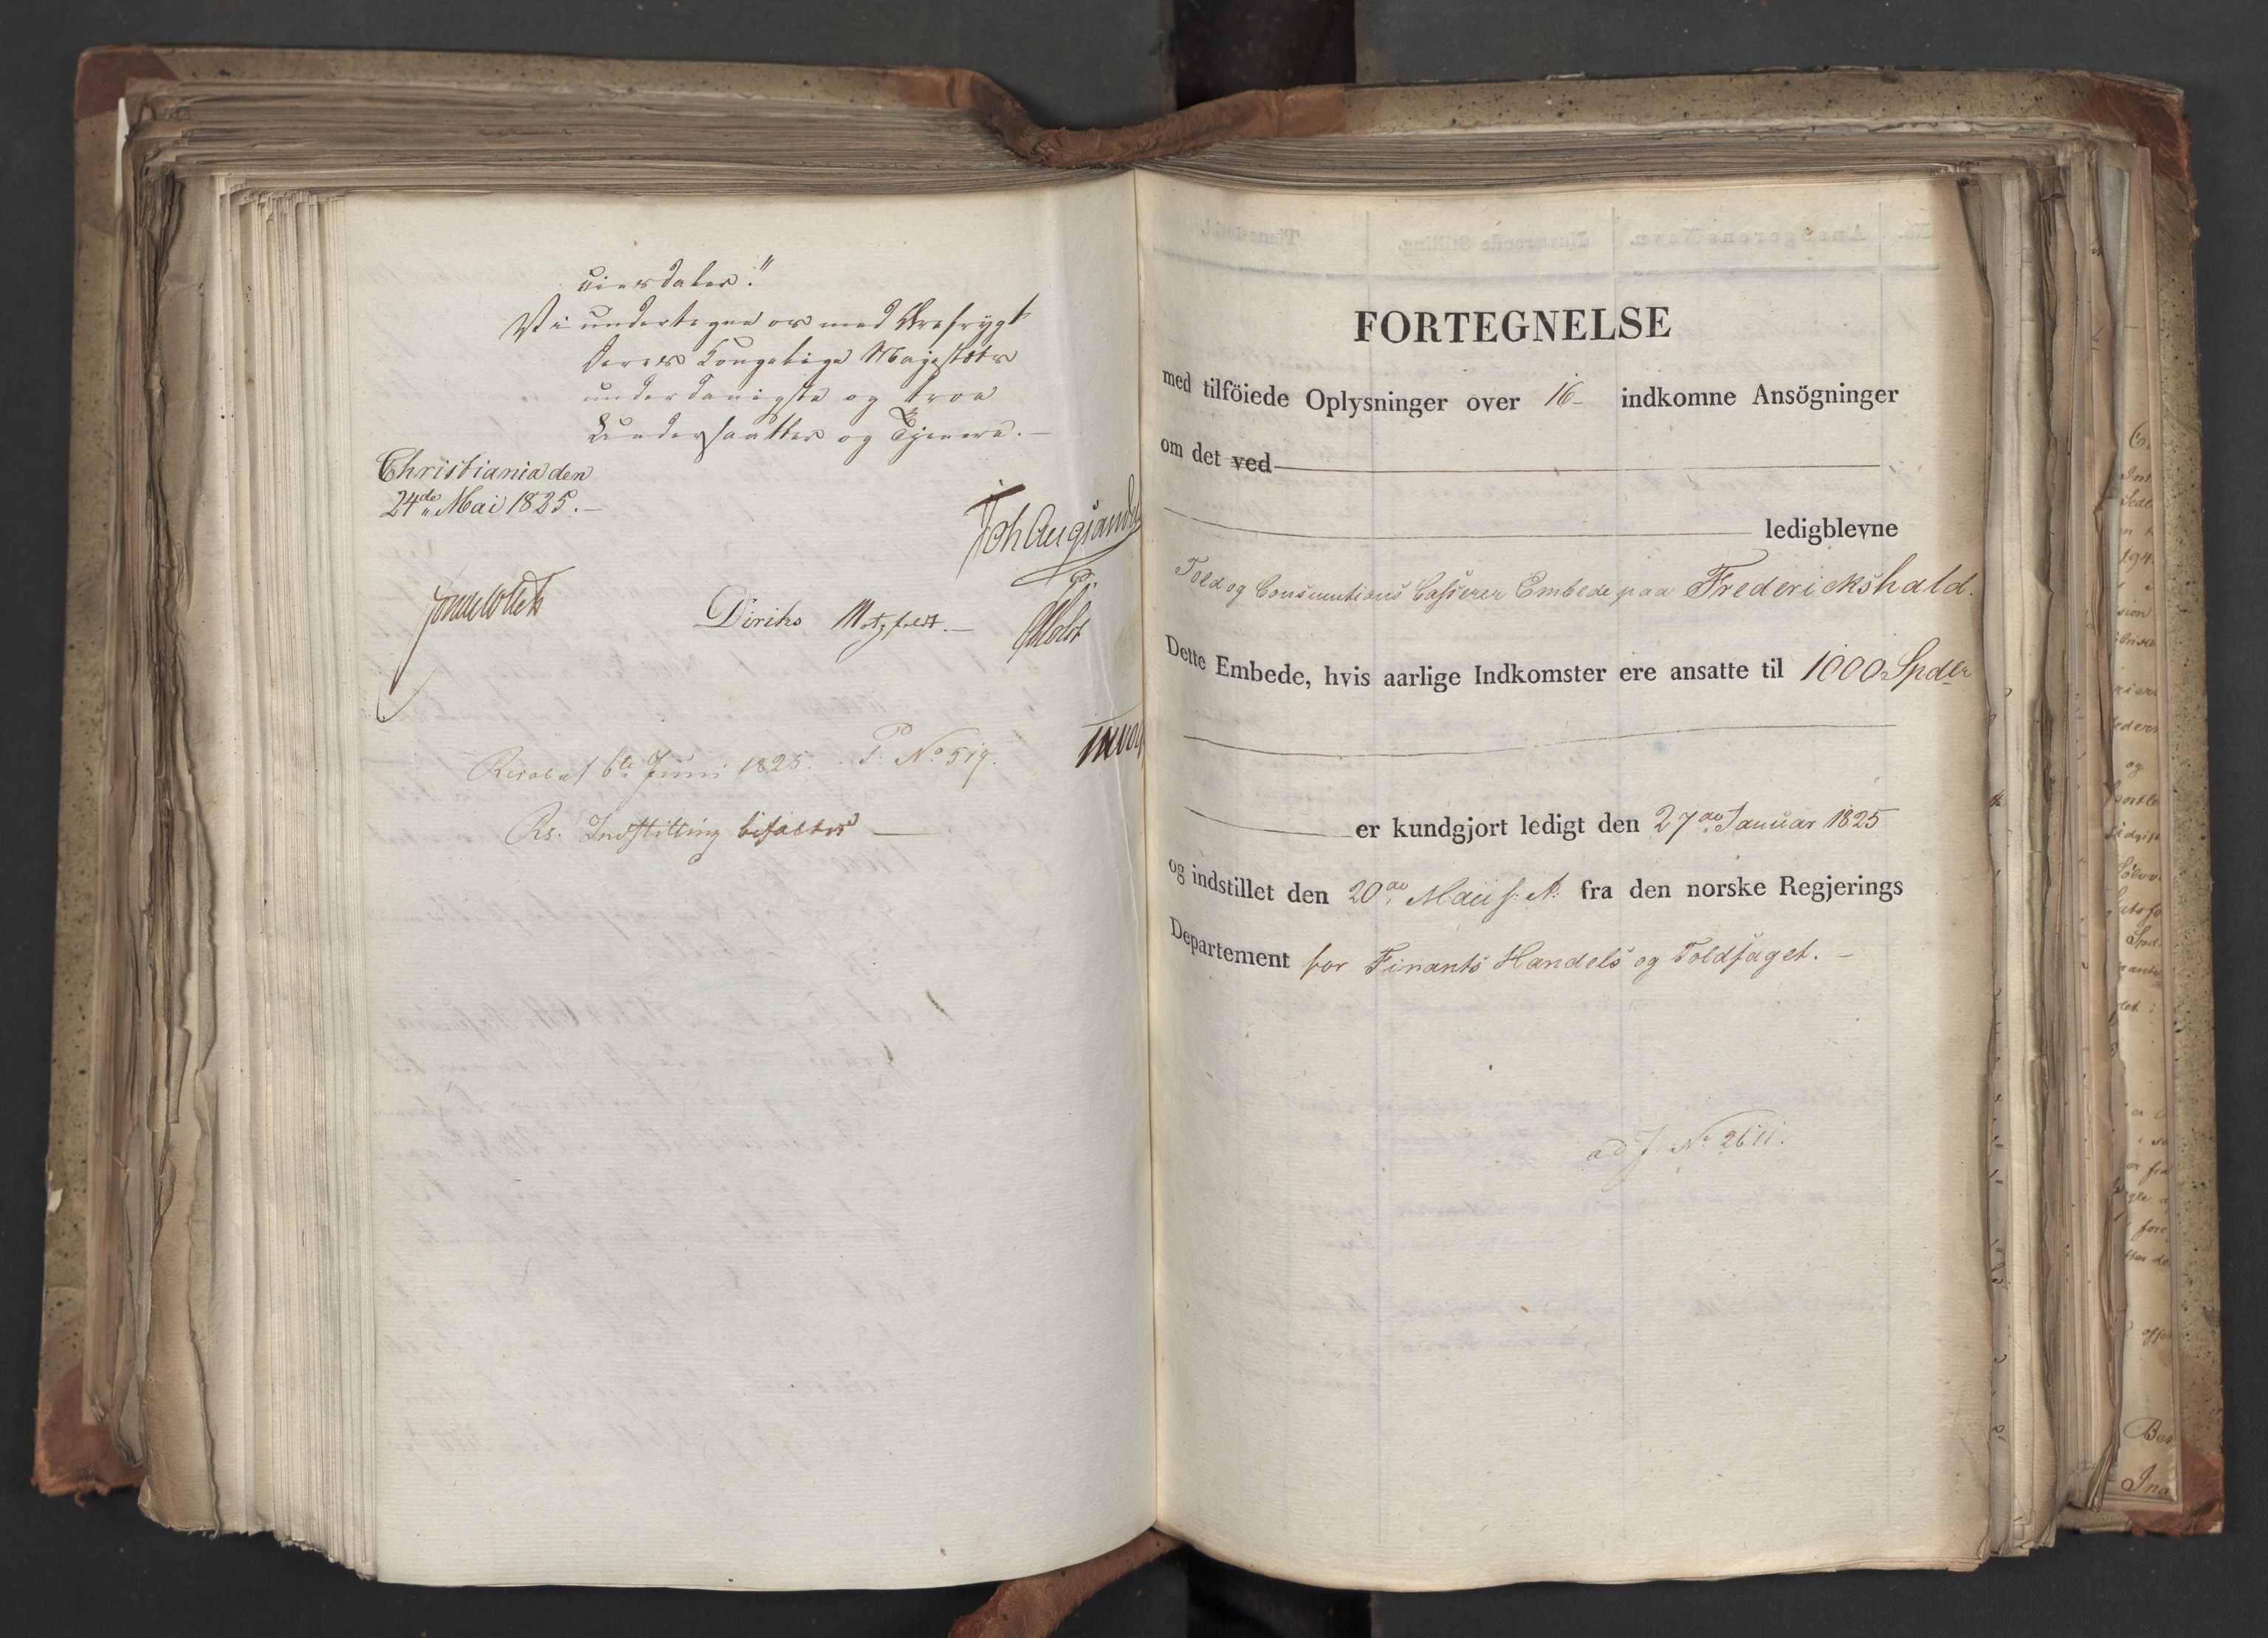 ciesdaler."
Vi undertegne os med Ærefrygt
Deres Kongelige Majestæts
underdanigste og troe
Undersaatter og Tjenere. —
Christiania den
24de Mai 1825. —
Joh Aug Sande
Diriks Motzfeldt. — Holst
Resol. af 6te Juni 1825. P. No 519.
Rs. Indstilling bifaldes —
FORTEGNELSE
med tilföiede Oplysninger over 16 indkomne Ansögninger
om det ved
ledigblevne
Told og Consumtions Casserer Embede paa Frederickshald.
Dette Embede, hvis aarlige Indkomster ere ansatte til 1000 Spdlr
er kundgjort ledigt den 27de Januar 1825
og indstillet den 20de Maii s: A: fra den norske Regjerings
Departement for Finants Handels og Toldfaget. —
ad J. No 2611.